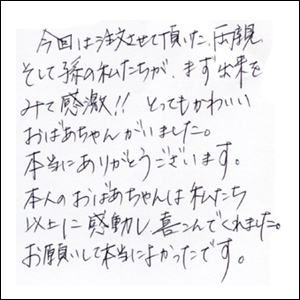 今回は注文させて頂いた、両親
そして孫の私たちが、まず出来を
みて感激!! とってもかわいい
おばあちゃんがいました。
本当にありがとうございます。
本人のおばあちゃんは私たち
以上に感動し、喜こんでくれました。
お願いして本当によかったです。